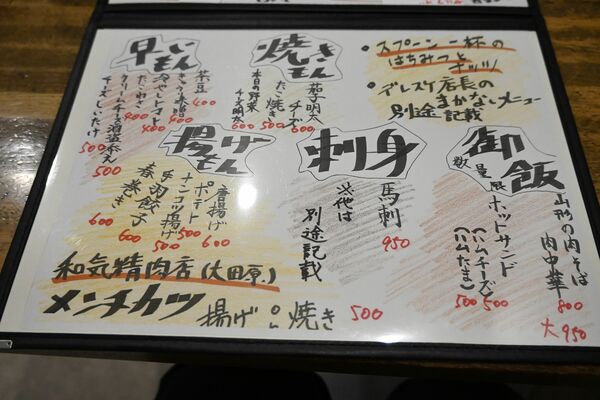 早いもん
茶豆
600
冷やしトマト
400
たたみいわし
クリームチーズの酒盗和え
500
チーズしいたけ
500
焼きもん
茄子明太チーズ
600
だし焼き
500
本日の野菜
チーズ明太
600
・スプーン一杯の
はちみつとナッツ
・デレスケ店長の
まかないメニュー
別途記載
揚げもん
唐揚げ
600
ポテト
500
ナンコツ揚げ
500
手羽餃子
600
春巻き
600
刺身
馬刺
950
其他は
別途記載
御飯
数量限
山形の肉そば
800
肉中華
大950
ホットサンド
(ハムチーズ)
500
(ハムたま)
500
和気精肉店(大田原)
メンチカツ
揚げ or 焼き 500